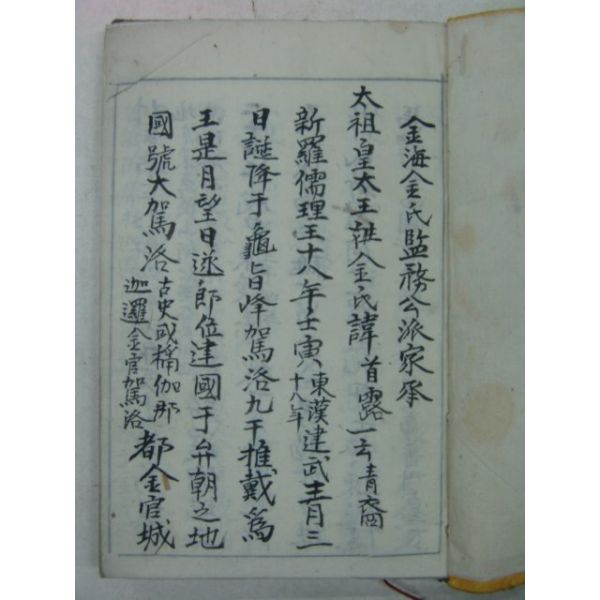 金海金氏監務公派家承
太祖皇太王姓金氏諱首露一云青裔
新羅儒理王十八年壬寅東漢建武十八年三月三
日誕降于龜旨峰駕洛九干推戴爲
王是月望日遂郎位建國于弁朝之地
國號大駕洛古史或稱伽那迦邏金官駕洛都金官城